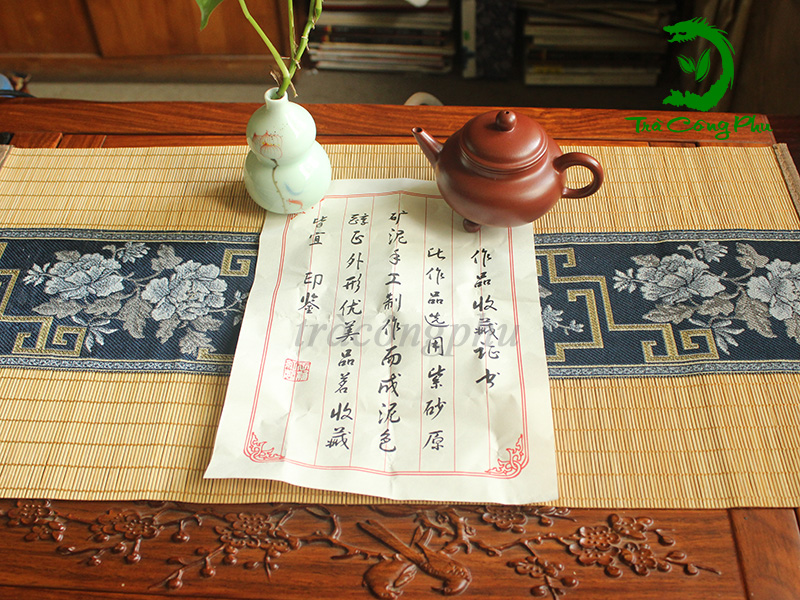 Trà Công Phu
作品收藏证书
此作品选用紫砂原
矿泥手工制作而成泥色
醇正外形优美品茗收藏
皆宜 印鉴
tracongphu